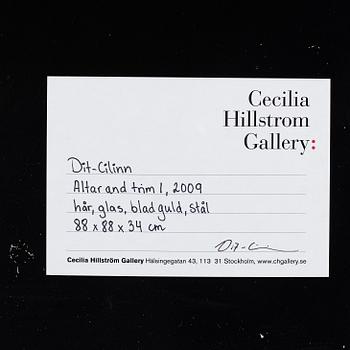 Cecilia
Hillstrom
Gallery:
Dit-Cilinn
Altar and trim 1, 2009
hår, glas, bladguld, stål
88 x 88 x 34 cm
Dit-Ci
Cecilia Hillström Gallery Hälsingegatan 43, 113 31 Stockholm, www.chgallery.se